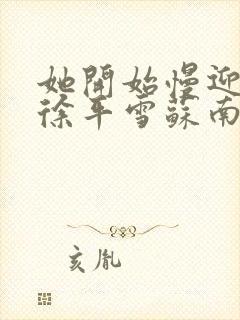 她开始慢迎
徐平雪蘇南
亥胤